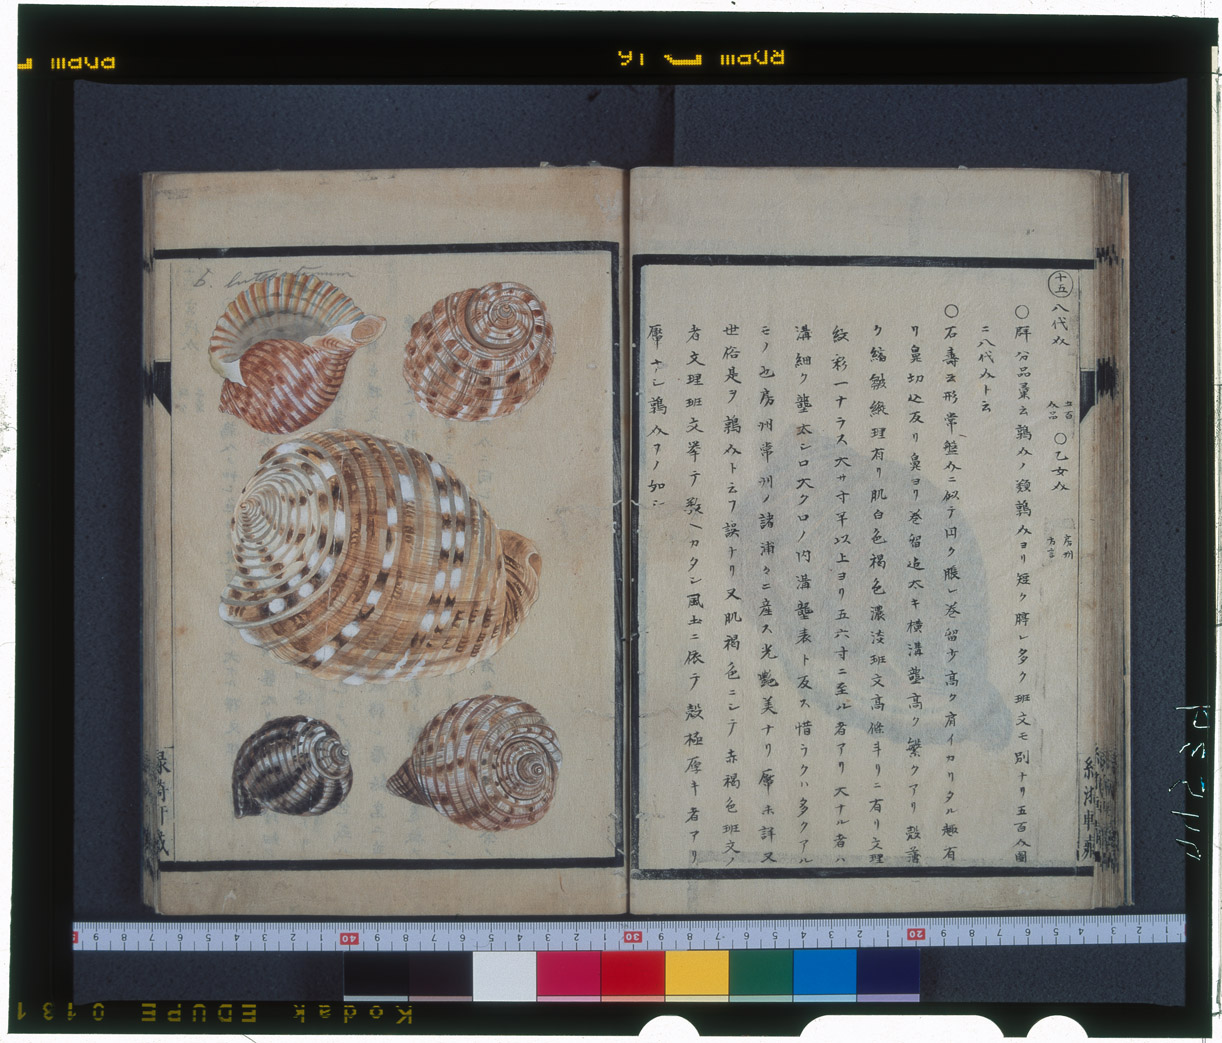 十五 八代介 五百介品 〇乙女介 房州方言
〇群分品彙云鶉介ノ類鶉介ヨリ短ク脖レ多ク班文モ別ナリ五百介圖
ニ八代介ト云
〇石壽云形常盤介ニ似テ円ク脹レ巻留少高ク肩イカリタル趣有
リ鼻切込反リ鼻ヨリ巻留迠太キ横溝壟高ク繁クアリ殻薄
ク縮皺縦理有リ肌白色褐色濃淡班文高條キリニ有リ文理
紋彩一ナラス大サ寸半以上ヨリ五六寸ニ至ル者アリ大ナル者ハ
溝細ク壟太シロ大クロノ内溝壟表ト反ス惜ラクハ多クアル
モノ也房州常州ノ諸浦々ニ産ス光艶美ナリ厴未詳又
世俗是ヲ鶉介ト云フ誤ナリ又肌褐色ニシテ赤褐色班文ノ
者文理班文挙テ数ヘカタシ風土ニ依テ殻極厚キ者アリ
厴ナシ鶉介フノ如シ
6.
Kodak EDUPE 0131
16
RDPIII